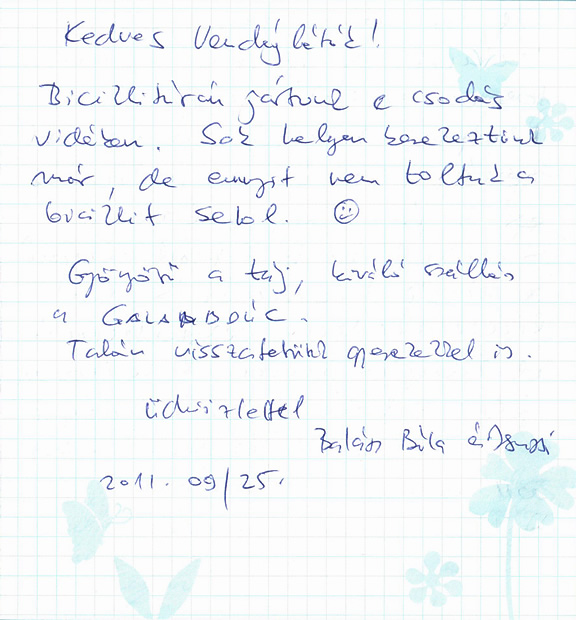 Kedves Vendéglátók!
Biciklitúrán jártunk e csodás
vidéken. Sok helyen kerekeztünk
már, de ennyit nem toltuk a
biciklit sehol. ☺
Gyönyörű a táj, kiváló szállás
a GALAMBDÚC.
Talán visszatérünk gyerekekkel is.
üdvözlettel
Balázs Béla és Zsuzsi
2011. 09/25.